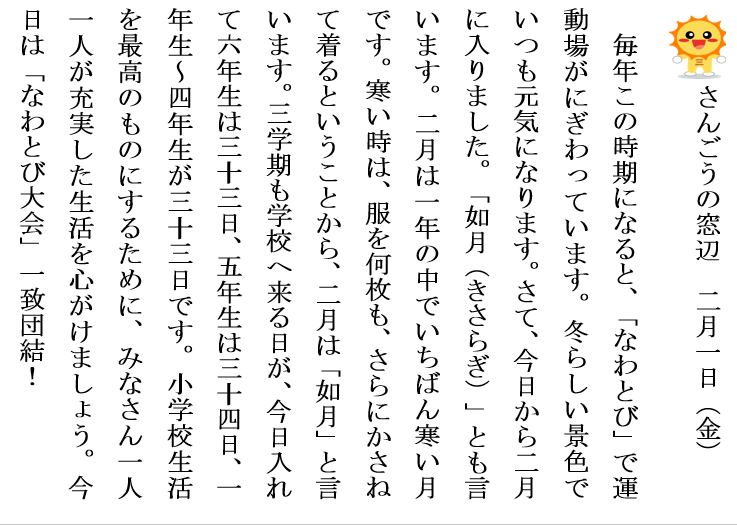 さんごうの窓辺　二月一日（金）
　毎年この時期になると、「なわとび」で運
動場がにぎわっています。冬らしい景色で
いつも元気になります。さて、今日から二月
に入りました。「如月（きさらぎ）」とも言
います。二月は一年の中でいちばん寒い月
です。寒い時は、服を何枚も、さらにかさね
て着るということから、二月は「如月」と言
います。三学期も学校へ来る日が、今日入れ
て六年生は三十三日、五年生は三十四日、一
年生～四年生が三十三日です。小学校生活
を最高のものにするために、みなさん一人
一人が充実した生活を心がけましょう。今
日は「なわとび大会」一致団結！